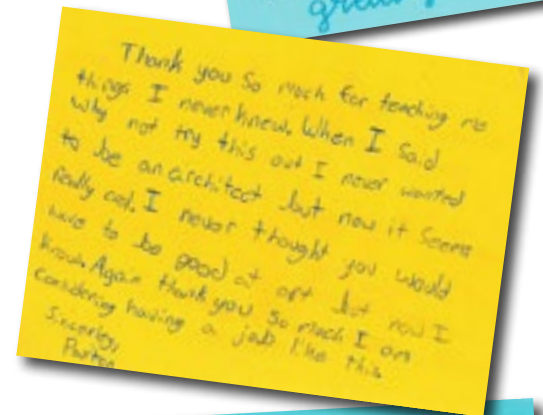 great
Thank you So much for teaching me
things I never knew. When I Said
why not try this out I never wanted
to be an architect but now it Seems
really cool. I never thought you would
have to be good at art but now I
know. Again thank you So much I am
considering having a job like this.
Sincerley,